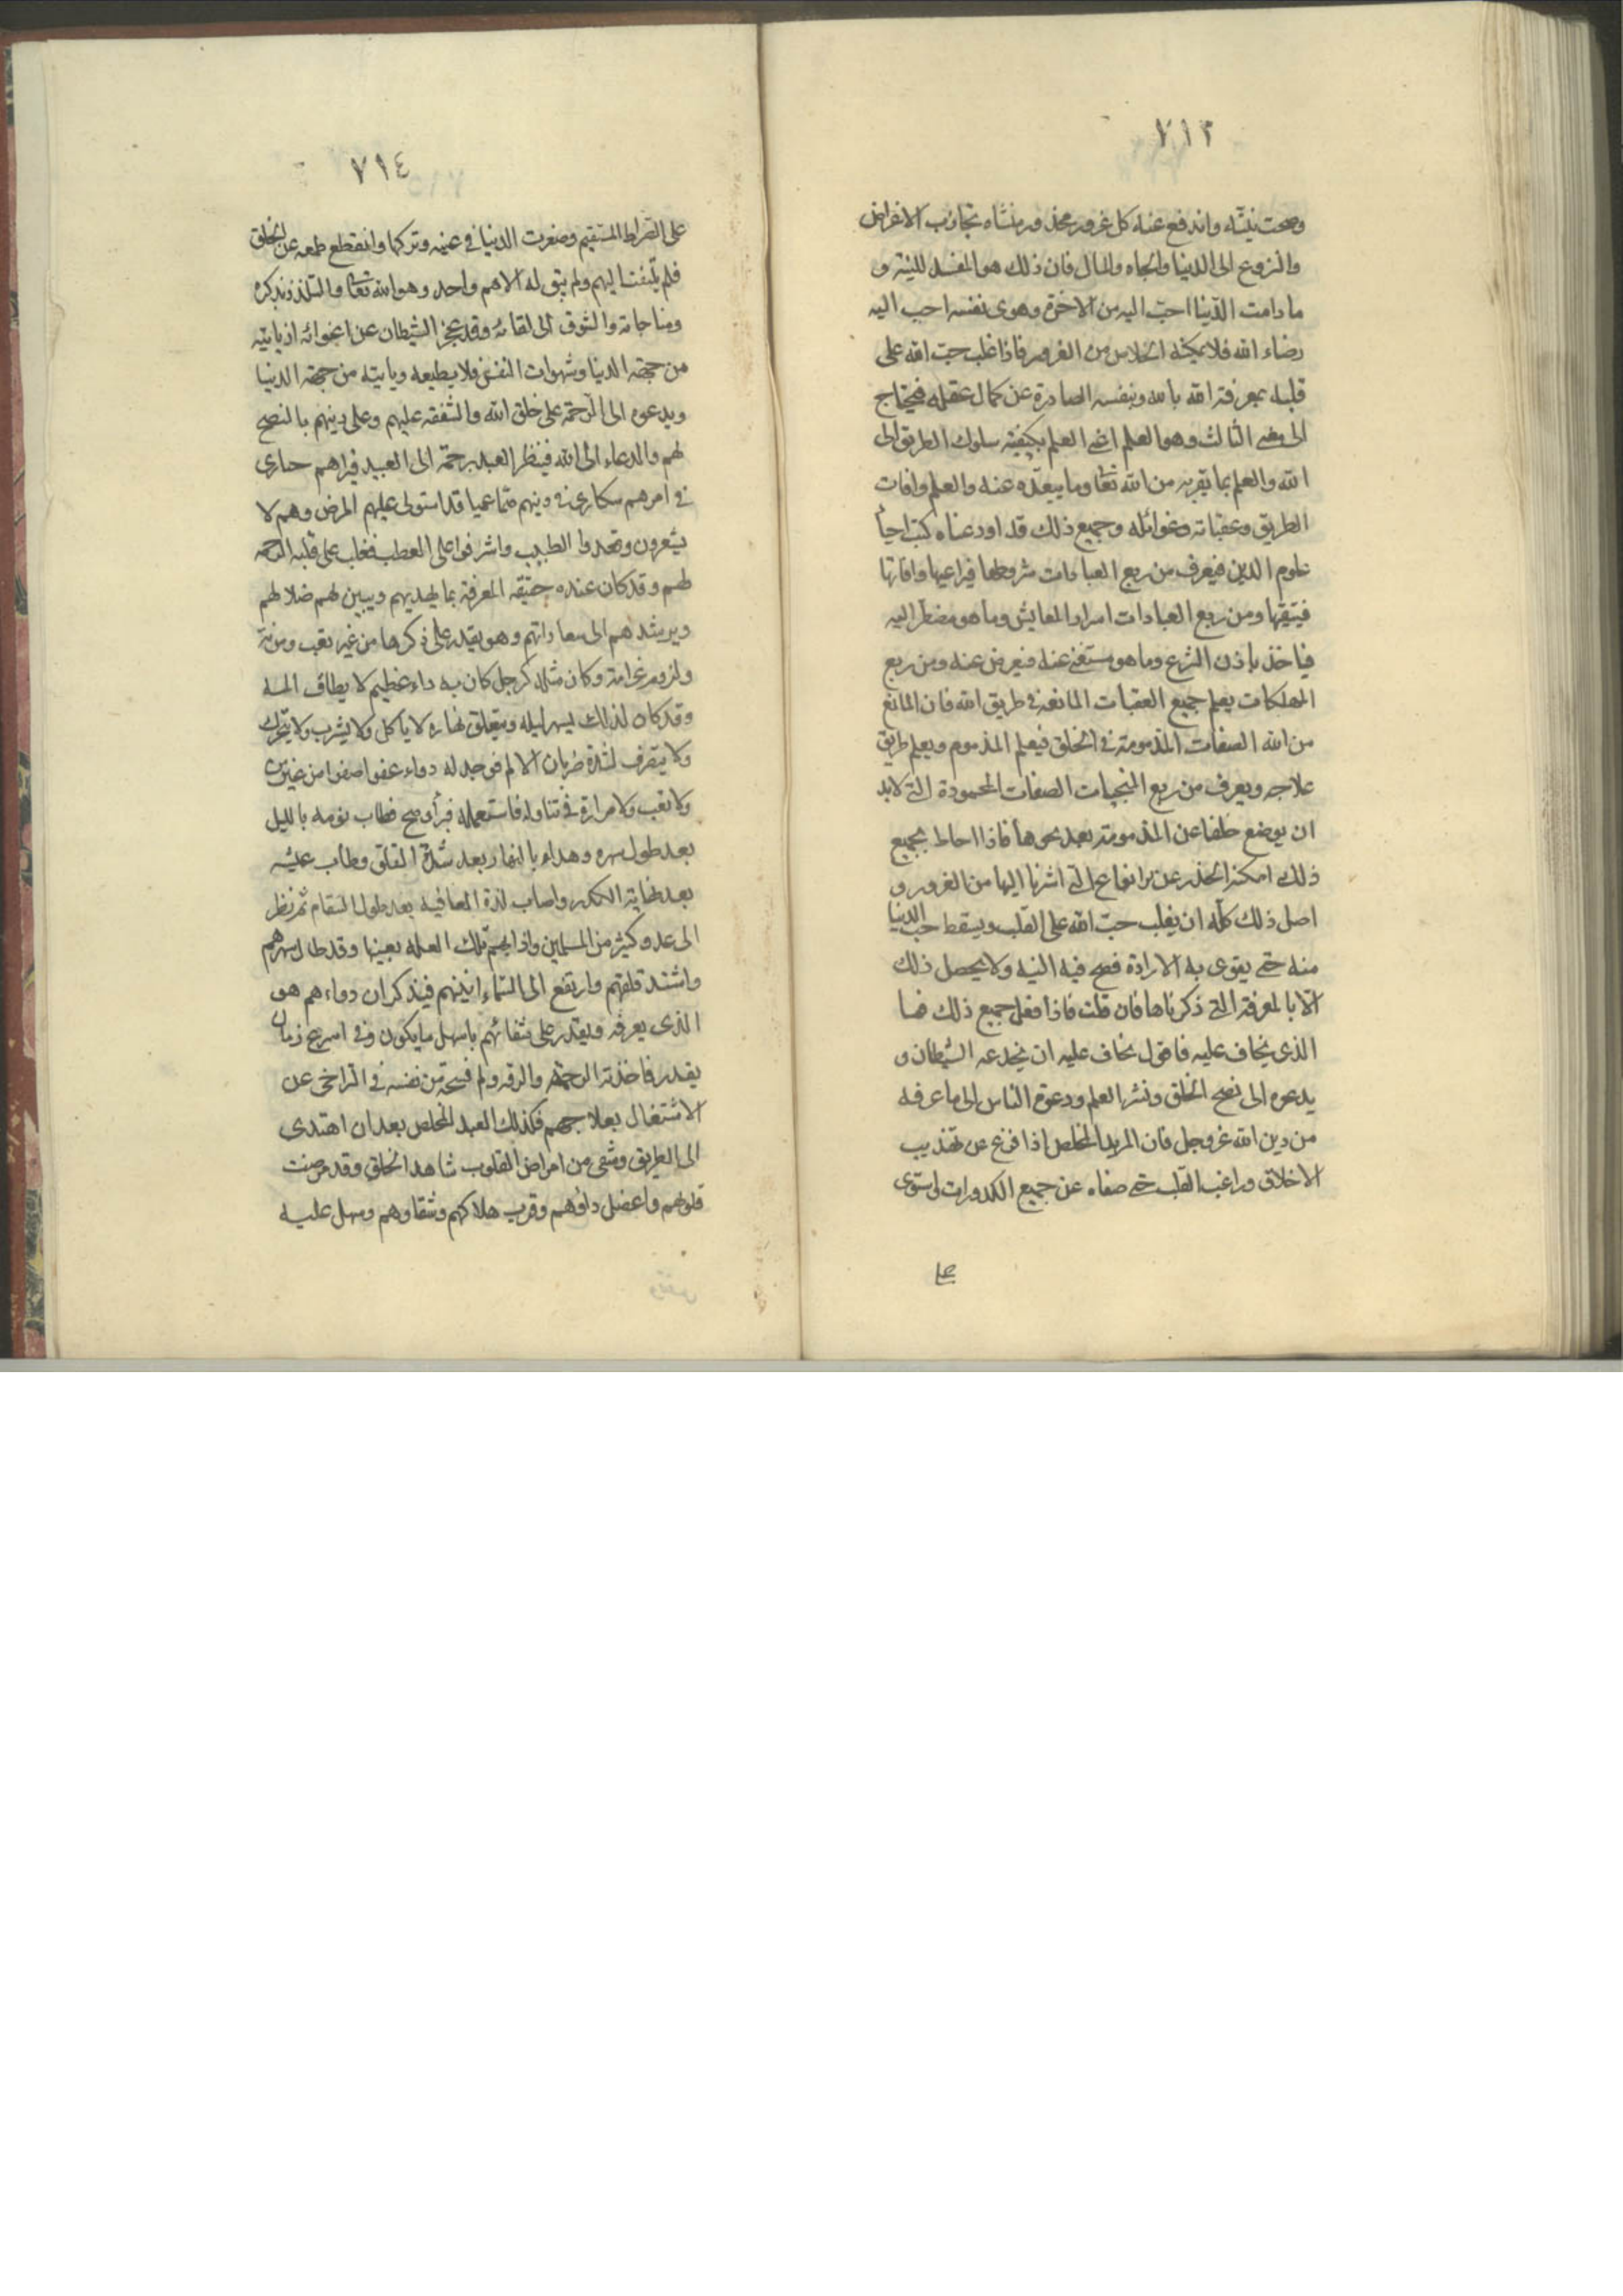 ٧١٣
وصحت نيته واندفع عنه كل غرور محذور منشاه تجاذب الاغراض
والنزوع الى الدنيا والجاه والمال فان ذلك هو المفسد للنية و
ما دامت الدنيا احب اليه من الاخرة وهوى نفسه احب اليه
رضاء الله فلا يمكنه الخلاص من الغرور فاذا غلب حب الله على
قلبه بمعرفة الله بالله وبنفسه الصادرة عن كمال عقله فيحتاج
الى معنى الثالث وهو العلم اعنى العلم بكيفية سلوك الطريق الى
الله والعلم بما يقربه من الله تعا وما يبعده عنه والعلم وافات
الطريق وعقباته وغوائله وجميع ذلك قد اودعناه كتب احيأ
علوم الدين فيعرف من ربع العبادات شروطها فيراعيها وافاتها
فيتقيها ومن ربع العبادات اسرار المعايش وما هو مضطر اليه
فياخذ باذن الشرع وما هو مستغنى عنه فيعرض عنه ومن ربع
المهلكات يعلم جميع العقبات المانعة فى طريق الله فان المانع
من الله الصفات المذمومة فى الخلق فيعلم المذموم ويعلم طريق
علاجه ويعرف من ربع المنجيات الصفات المحمودة التى لابد
ان يوضع خلفا عن المذمومة بعد محوها فاذا احاط بجميع
ذلك امكنه الحذر عن الانواع التى اشرنا اليها من الغرور و
اصل ذلك كله ان يغلب حب الله على القلب ويسقط حب الدنيا
منه حتى يقوى به الارادة فصح فيه النية ولا يحصل ذلك
الا بالمعرفة التى ذكرناها فان قلت فاذا فعل جميع ذلك فما
الذى يخاف عليه فاقول يخاف عليه ان يخدعه الشيطان و
يدعوه الى نصح الخلق ونشر العلم ودعوة الناس الى ما عرفه
من دين الله عز وجل فان المريد المخلص اذا فرغ عن تهذيب
الاخلاق وراغب القلب حتى صفاه عن جميع الكدورات واستوى
على
٧١٤
على الصراط المستقيم وصغرت الدنيا فى عينه وتركها وانقطع طمعه عن الخلق
فلم يلتفت اليهم ولم يبق له الا هم واحد وهو الله تعا والتلذذ بذكره
ومناجاته والشوق الى لقائه وقد عجز الشيطان عن اغوائه اذ ياتيه
من جهة الدنيا وشهوات النفس فلا يطيعه وياتيه من جهة الدنيا
ويدعوه الى الرحمة على خلق الله والشفقه عليهم وعلى دينهم بالنصح
لهم والدعاء الى الله فينظر العبد برحمة الى العبيد فيراهم حيارى
فى امرهم سكارى فى دينهم صما عميا قد استولى عليهم المرض وهم لا
يشعرون وفقدوا الطبيب واشرفوا على العطب فغلب على قلبه الرحمه
لهم وقد كان عنده حقيقه المعرفة بما يهديهم ويبين لهم ضلالهم
ويرشدهم الى سعاداتهم وهو يقدر على ذكرها من غير تعب ومؤنة
ولزوم غرامة وكان مثله كرجل كان به داء عظيم لا يطاق المه
وقد كان لذلك ليسهر ليله ويتعلق نهاره لا ياكل ولا يشرب ولا يتحرك
ولا يتصرف لشدة ضربان الالم فوجد له دواء عفوا صفوا من غير
ولا تعب ولا مرارة فى تناوله فاستعمله فبرأ وصح فطاب نومه بالليل
بعد طول سهره وهداء بالنهار بعد شدة القلق وطاب عيشه
بعد نهاية الكدر واصاب لذة العافيه بعد طول السقام ثم نظر
الى عدد كثير من المسلمين واذا بهم تلك العله بعينها وقد طال سهرهم
واشتد قلقهم وارتفع الى السماء انينهم فيذكر ان دواءهم هو
الذى يعرفه ويقدر على شفائهم باسهل ما يكون وفى اسرع زمان
يقدر فاخذته الرحمة والرقه ولم فسحة من نفسه فى التراخى عن
الاشتغال بعلاجهم فكذلك العبد المخلص بعد ان اهتدى
الى الطريق وشفى من امراض القلوب شاهد الخلق وقد مرضت
قلوبهم واعضل داؤهم وقرب هلاكهم وشقاوهم وسهل عليه